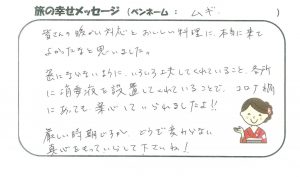 旅の幸せメッセージ (ペンネーム : ムギ )
皆さんの暖かい対応とおいしい料理に、本当に来て
よかったなと思いました。
密にならないように、いろいろ工夫してくれていること、各所
に消毒液を設置してくれていることで、コロナ禍
にあっても安心していられましたよ!!
厳しい時期ですが、どうぞ変わらない
真心をもっていらして下さいね!